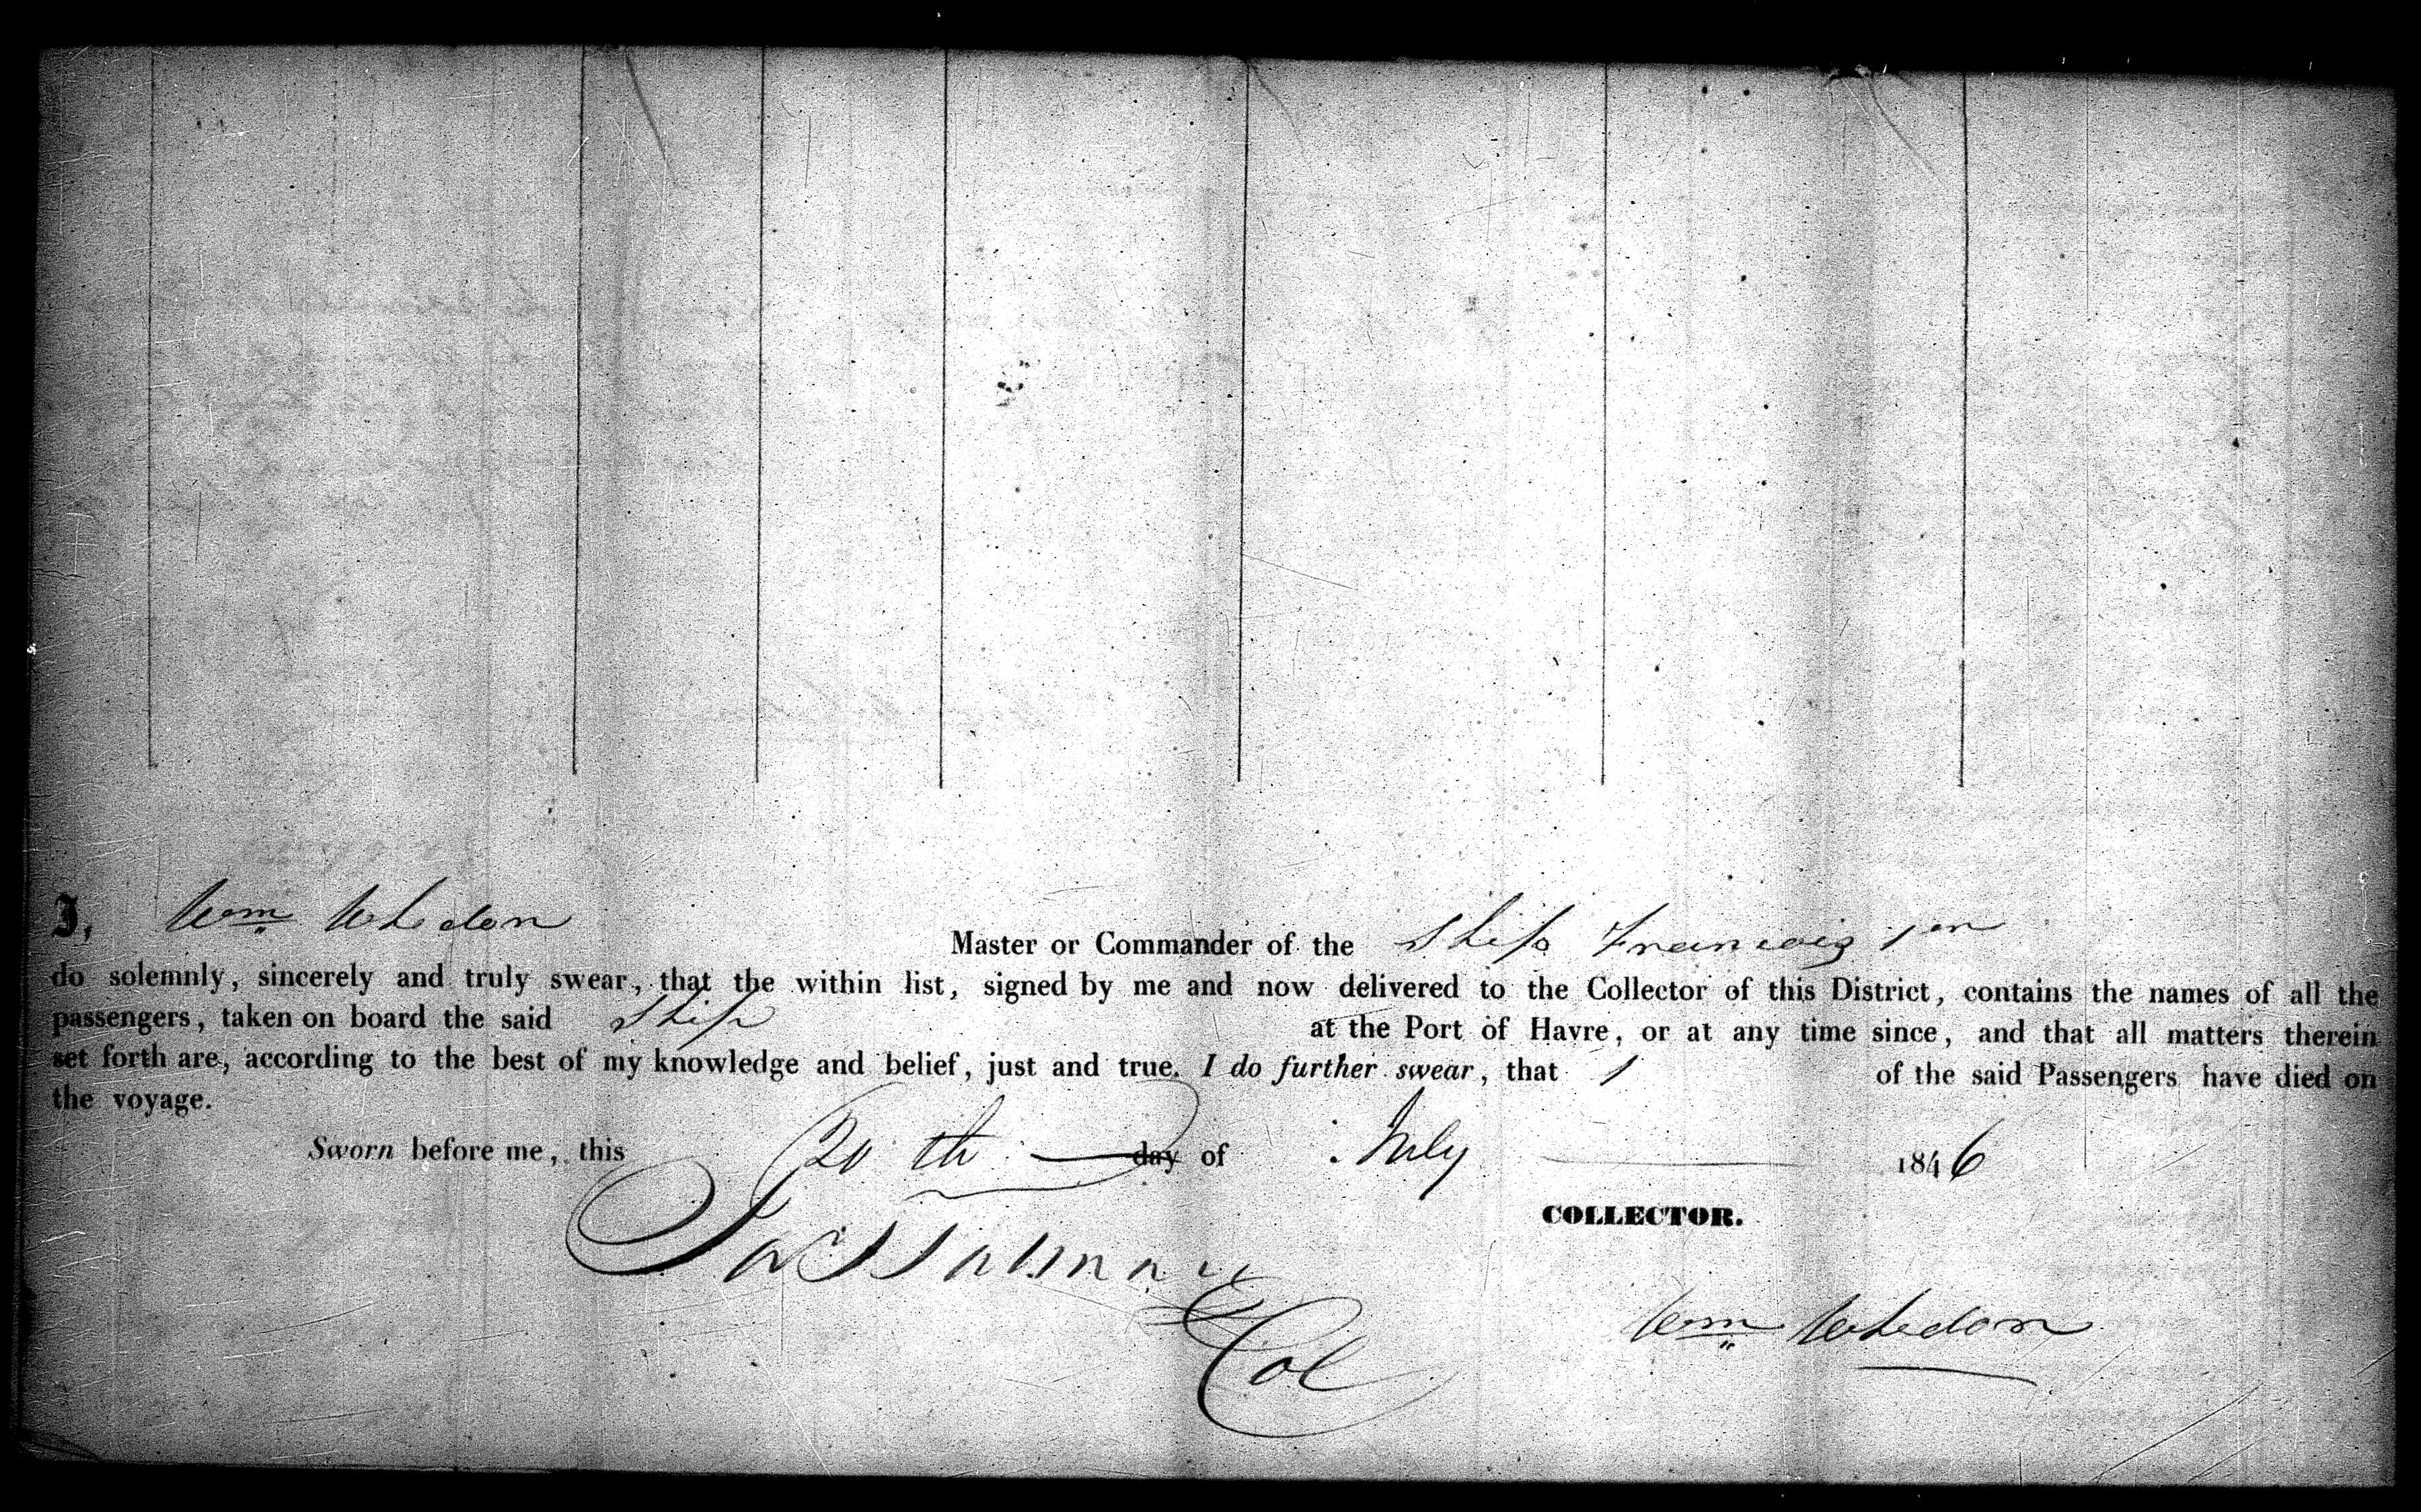 I, Wm Whedon Master or Commander of the Ship Francois 1er
do solemnly, sincerely and truly swear, that the within list, signed by me and now delivered to the Collector of this District, contains the names of all the
passengers, taken on board the said Ship at the Port of Havre, or at any time since, and that all matters therein
set forth are, according to the best of my knowledge and belief, just and true. I do further swear, that 1 of the said Passengers have died on
the voyage.
Sworn before me, this 20th day of July 1846
COLLECTOR.
Col
Wm Whedon